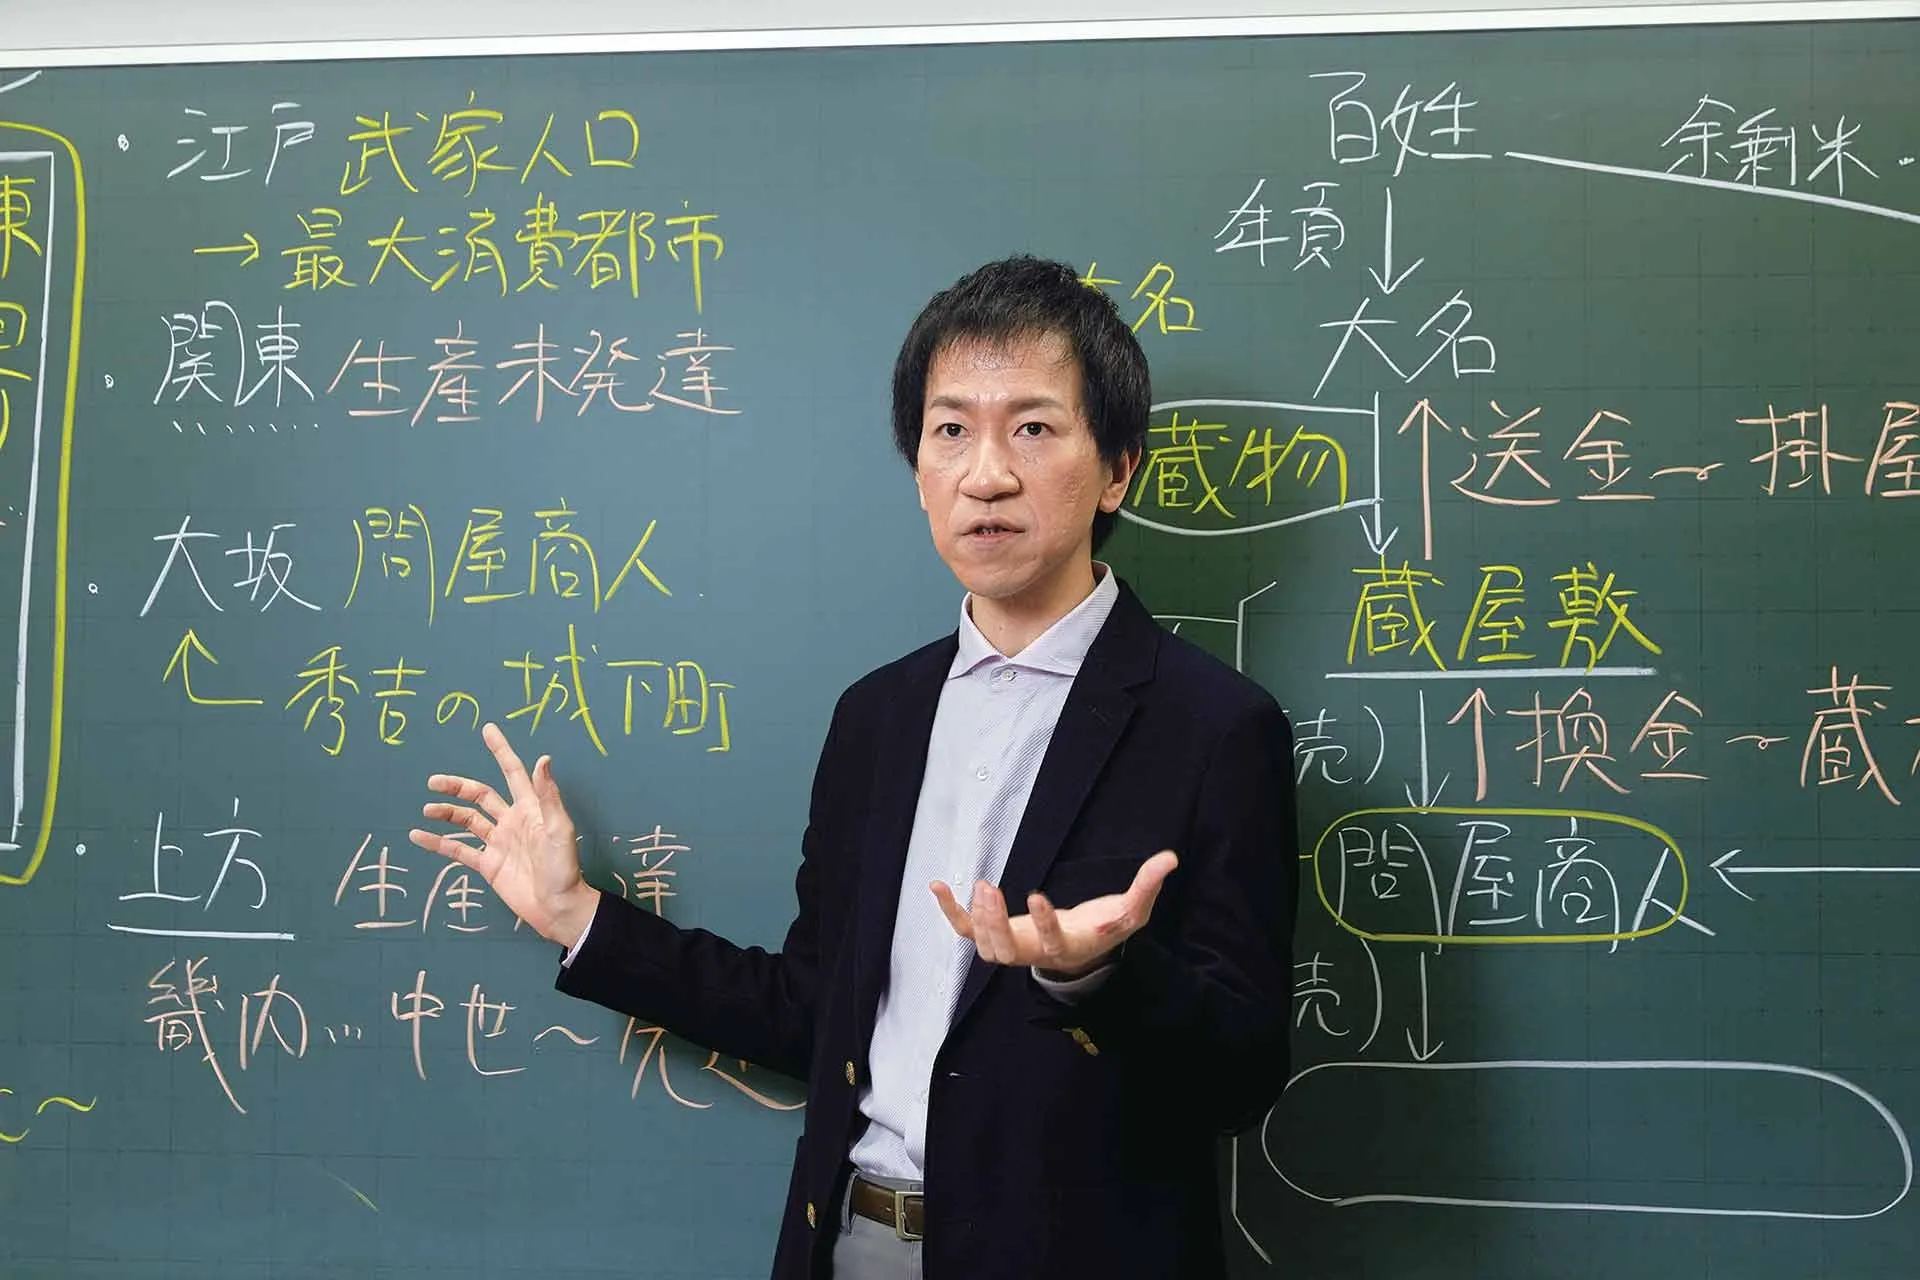 ・江戸 武家人口
→最大消費都市
・関東 生産未発達
・大坂 問屋商人
秀吉の城下町
・上方 生産 達
畿内…中世〜
百姓 余剰米
年貢
大名
名
蔵物
送金〜掛屋
蔵屋敷
売)
換金〜蔵
問屋商人
売)
東